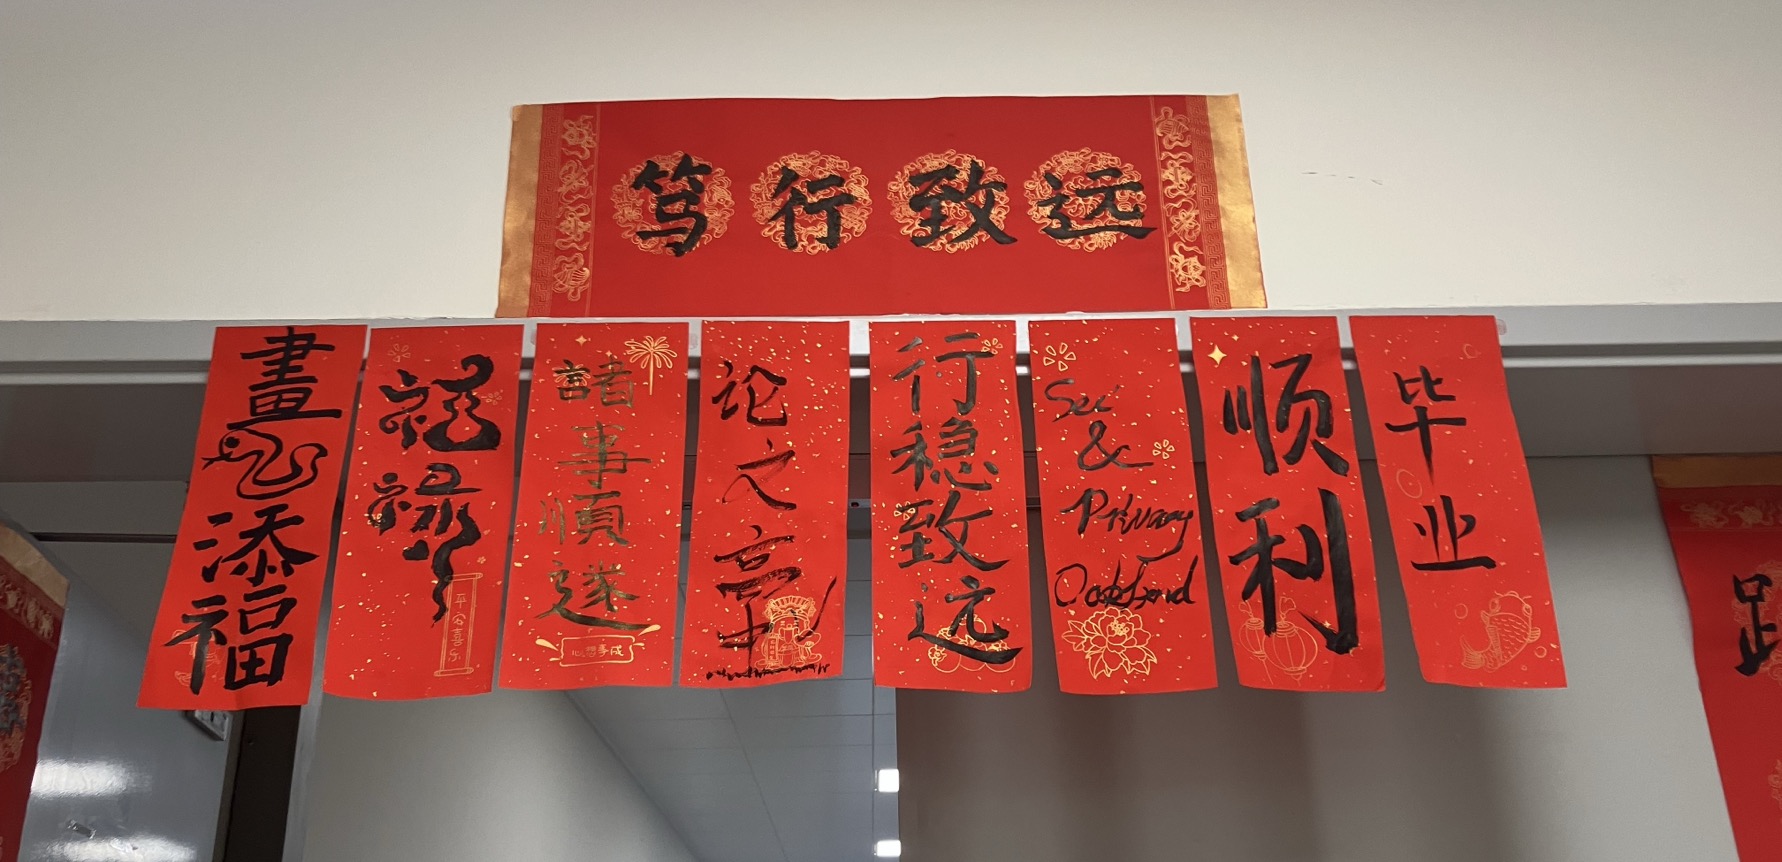 笃行致远
畫添福
平安喜乐
諸事順遂
心想事成
论文高中
行稳致远
Sec
&
Privacy
Oakland
顺利
毕业